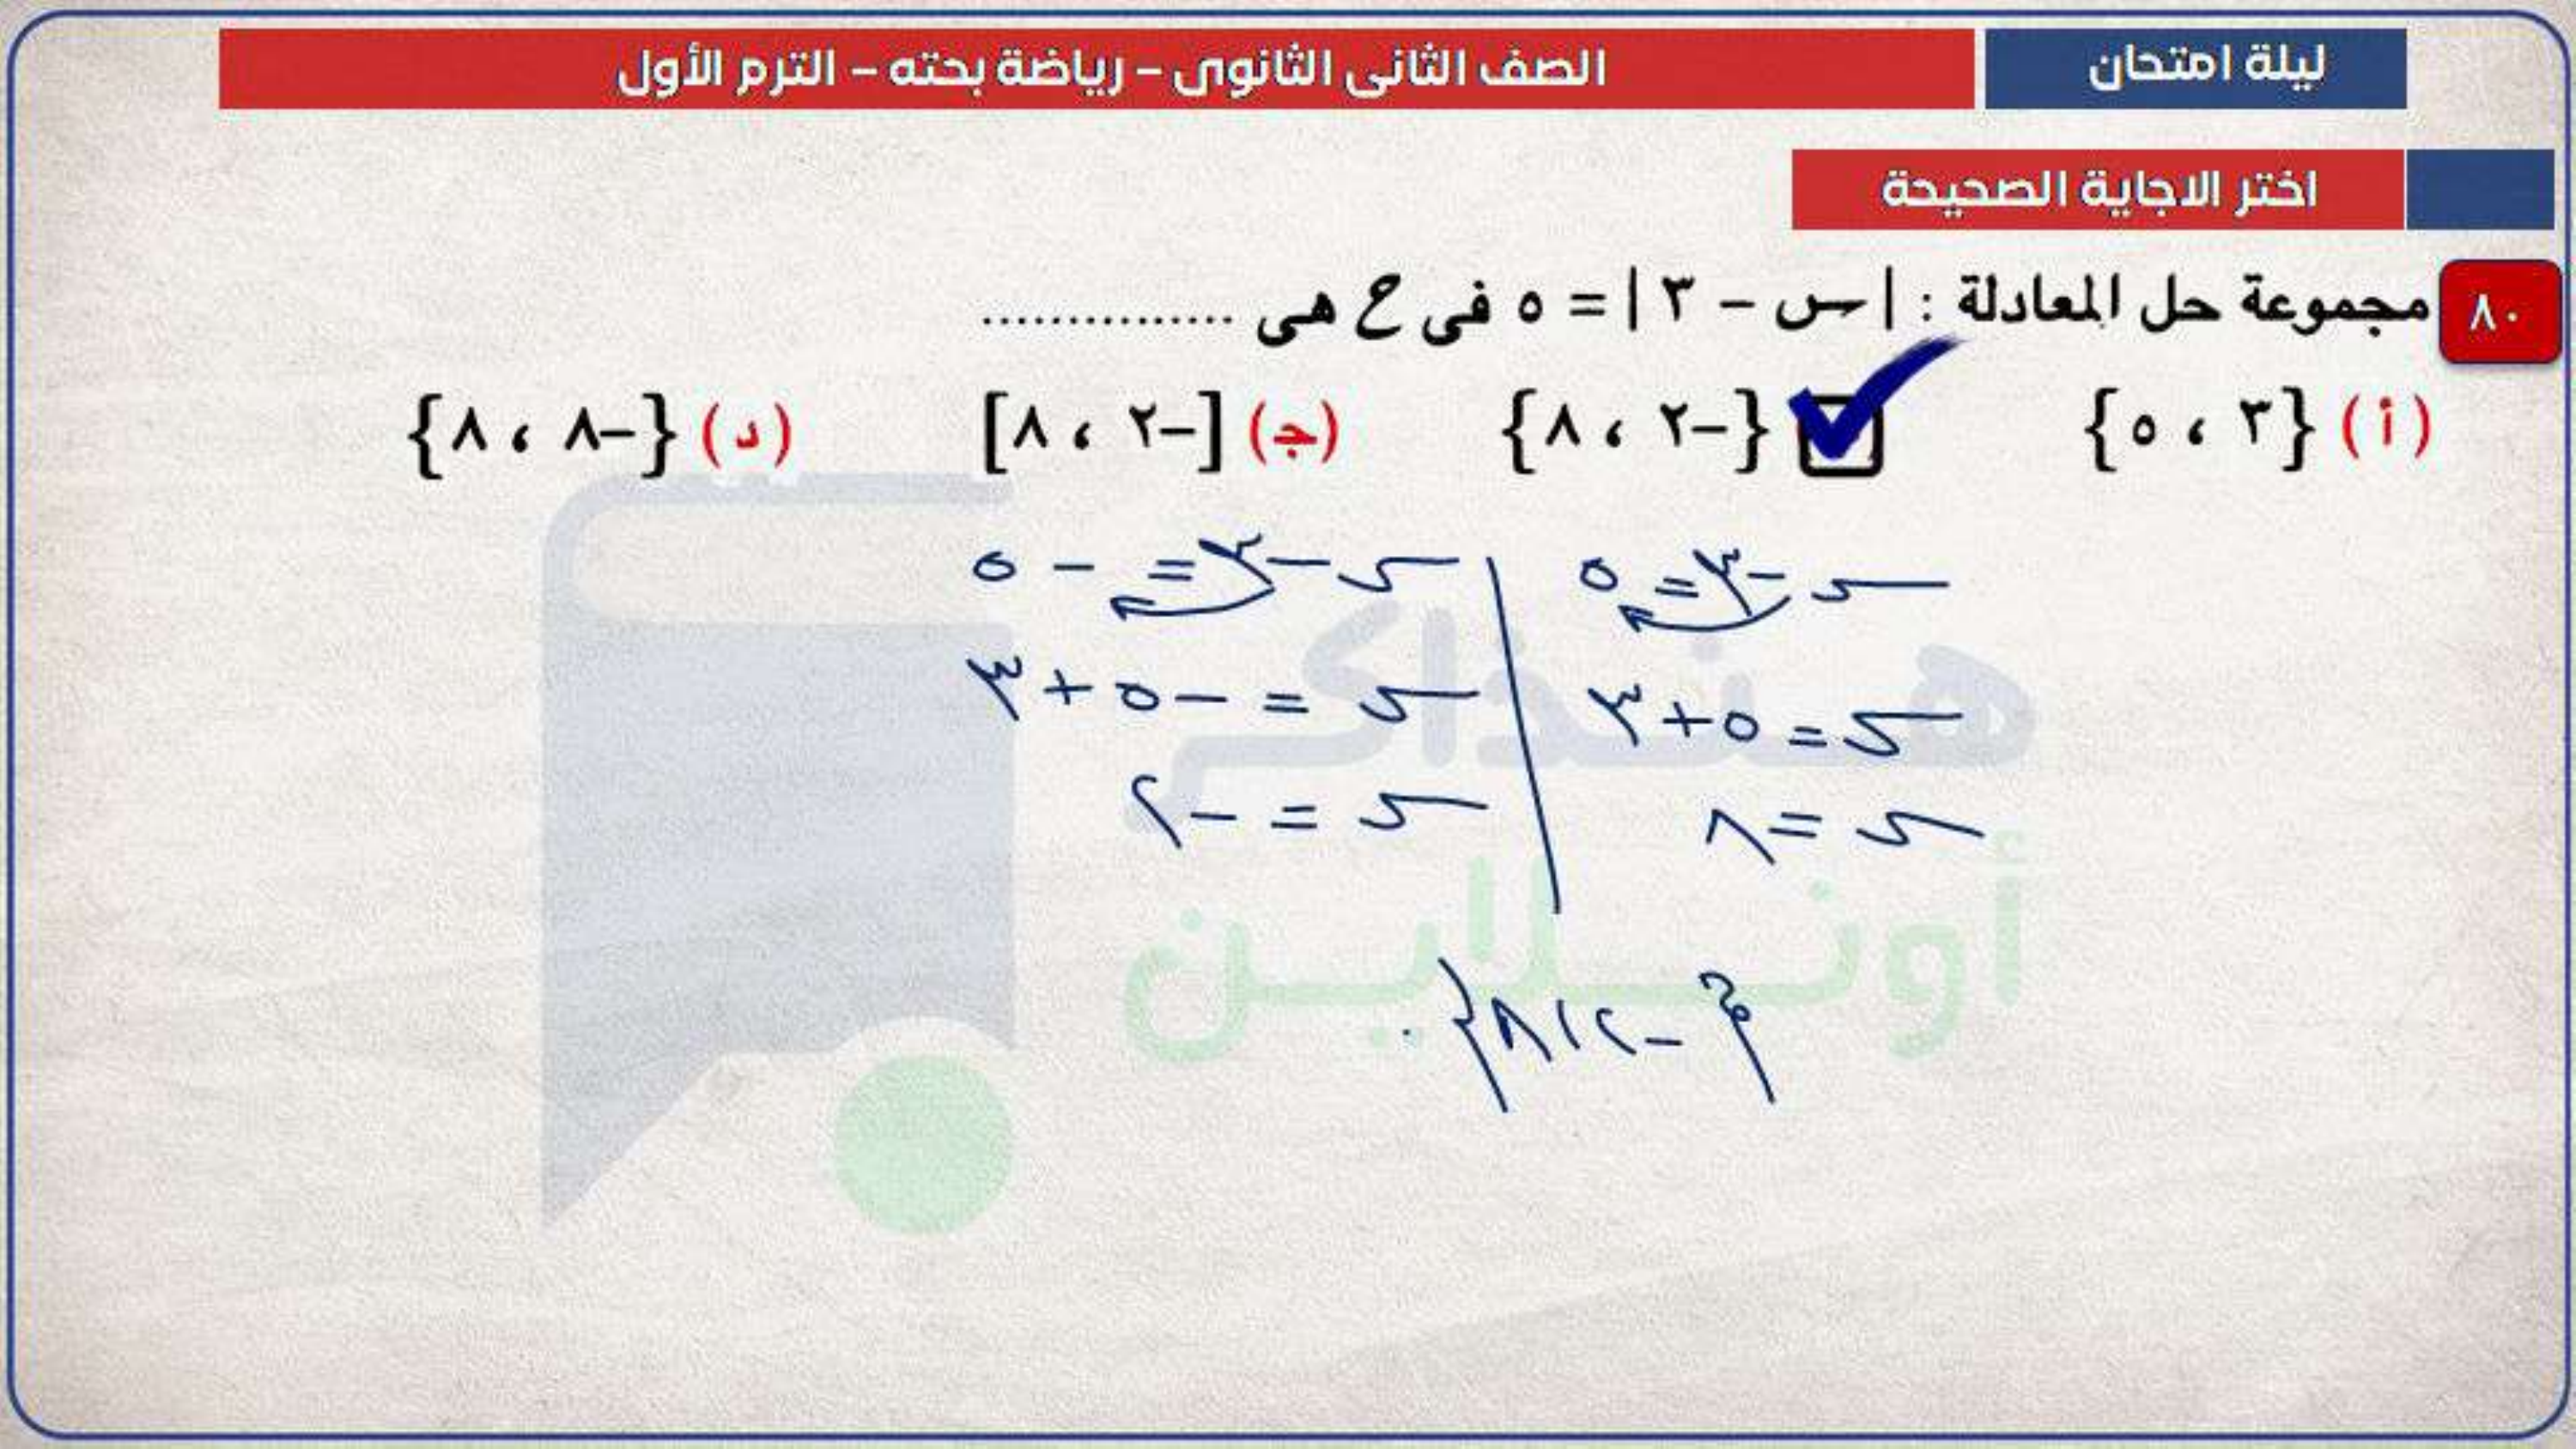 ليلة امتحان
الصف الثانى الثانوى – رياضة بحته – الترم الأول
اختر الاجاية الصحيحة
٨٠ مجموعة حل المعادلة : | س – ٣ | = ٥ فى ح هى ...............
(أ) {٣ ، ٥} {–٢ ، ٨} (جـ) [–٢ ، ٨] (د) {–٨ ، ٨}
س – ٣ = ٥
س = ٥ + ٣
س = ٨
س – ٣ = – ٥
س = – ٥ + ٣
س = – ٢
{– ٢ ، ٨}
هنذاكر
أونلاين